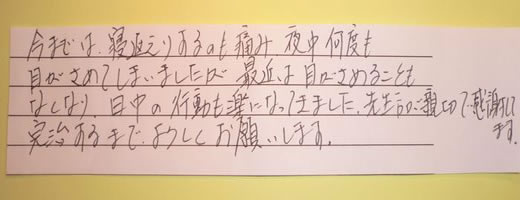 今までは、寝返えりするのも痛み、夜中何度も
目がさめてしまいましたが最近は目がさめることも
なくなり、日中の行動も楽になってきました。先生方が親切で感謝してます。
完治するまで、よろしくお願いします。